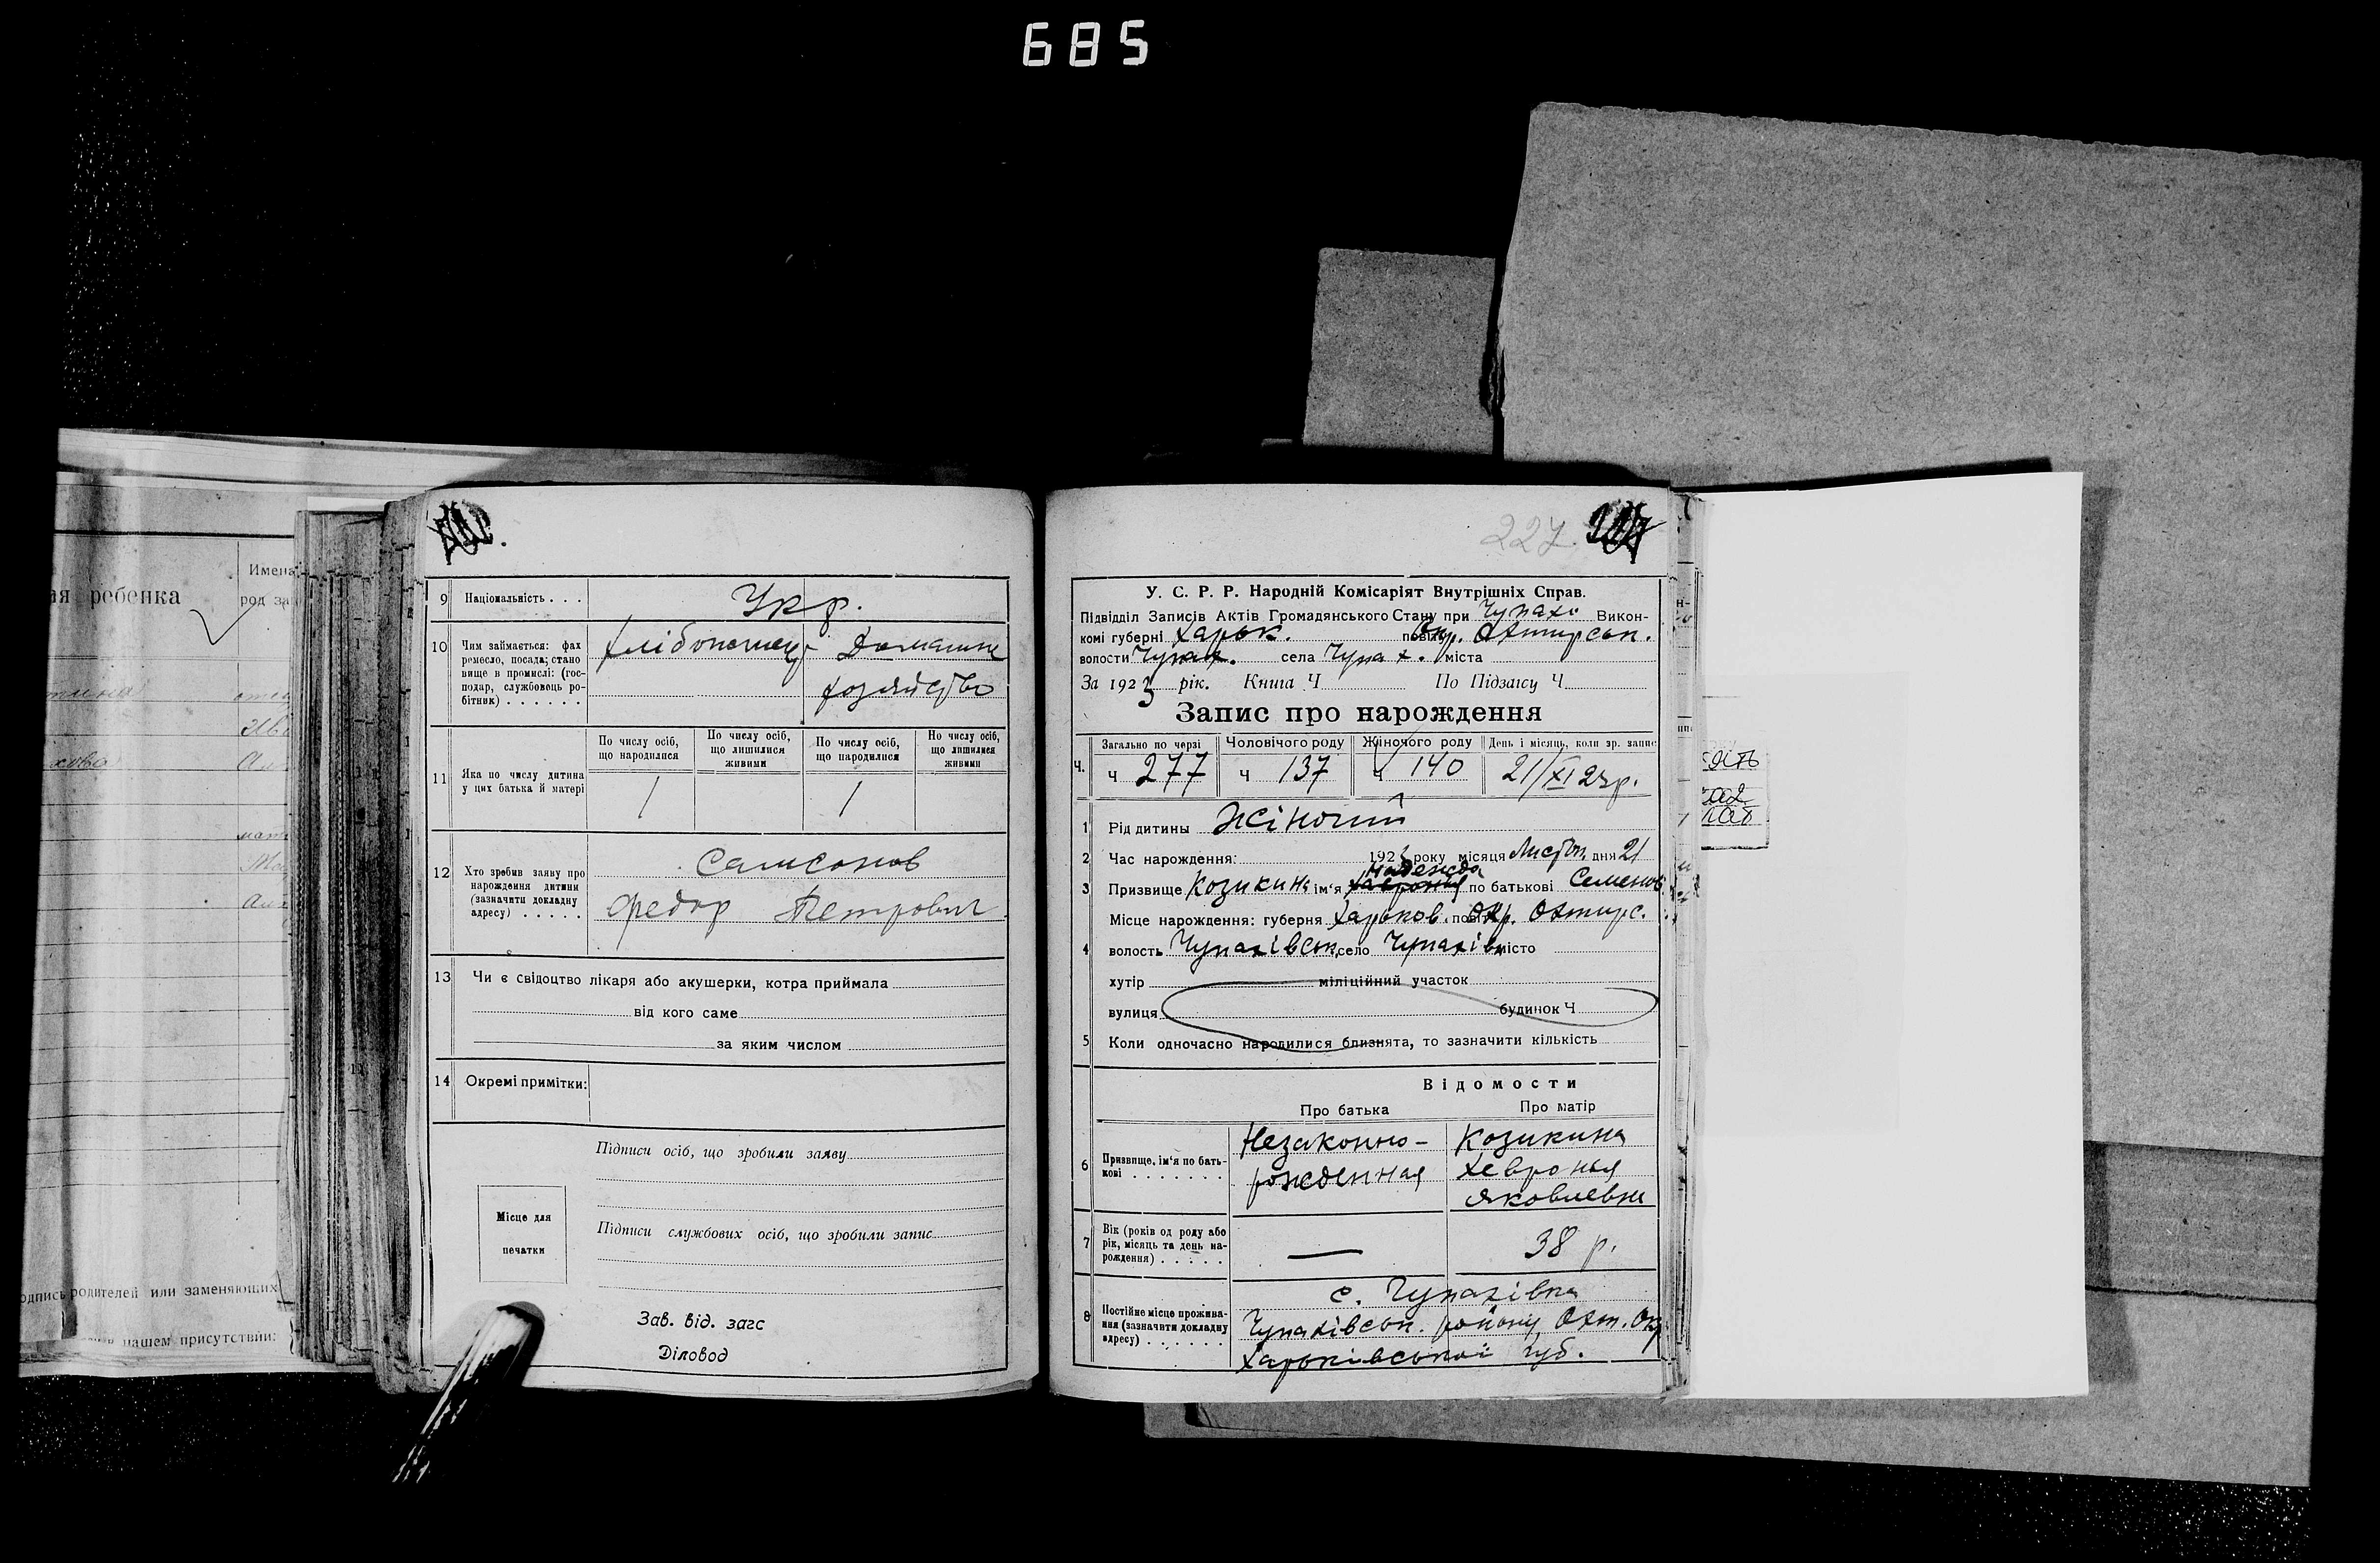 685
ребенка
Имена
род за
одпись родителей или заменяющих
нашем присутствии:
9 Національність . . . Укр.
10 Чим займається: фах ремесло, посада; стано вище в промислі: (гос- подар, службовець ро- бітник) . . . . . .
Домашнє
хозяйство
11 Яка по числу дитина у цих батька й матері
По числу осіб, що народилися
По числу осіб, що лишилися живими
По числу осіб, що народилися
По числу осіб, що лишилися живими
1 1
12 Хто зробив заяву про нарождення дитини (зазначити докладну адресу) . . . . .
Самсонов
Федор Петрович
13 Чи є свідоцтво лікаря або акушерки, котра приймала
від кого саме
за яким числом
14 Окремі примітки:
Підписи осіб, що зробили заяву
Місце для печатки
Підписи службових осіб, що зробили запис
Зав. від. загс
Діловод
227
У. С. Р. Р. Народній Комісаріят Внутрішніх Справ.
Підвідділ Записів Актів Громадянського Стану при Чупахі Викон-
комі губерні Харьк. Окр. Охтирськ.
волости Чупах. села Чупах. міста
За 1923 рік. Книга Ч По Підзагсу Ч.
Запис про нарождення
Загально по черзі Чоловічого роду Жіночого роду День і місяць, коли зр. запис
Ч. ч 277 ч 137 ч 140 21/XI 23р.
1 Рід дитини Жіночий
2 Час нарождення: 1923 року місяця Листоп. дня 21
Надежда
3 Призвище Козикина ім'я Хавронія по батькові Семенов.
Місце нарождення: губерня Харьков. Окр. Охтирс.
4 волость Чупахівськ. село Чупахівка місто
хутір міліційний участок
вулиця будинок Ч
5 Коли одночасно народилися близнята, то зазначити кількість
Відомости
Про батька Про матір
6 Призвище, ім'я по бать- кові . . . . . . .
Незаконно- Козикина
рожденная Хевронья
Яковлевна
7 Вік (років од роду або рік, місяць та день на- рождення) . . . . .
— 38 р.
8 Постійне місце прожива- ння (зазначити докладну адресу) . . . . . .
с. Чупахівка
Чупахівськ. району, Охт. Окр
Харьківської губ.